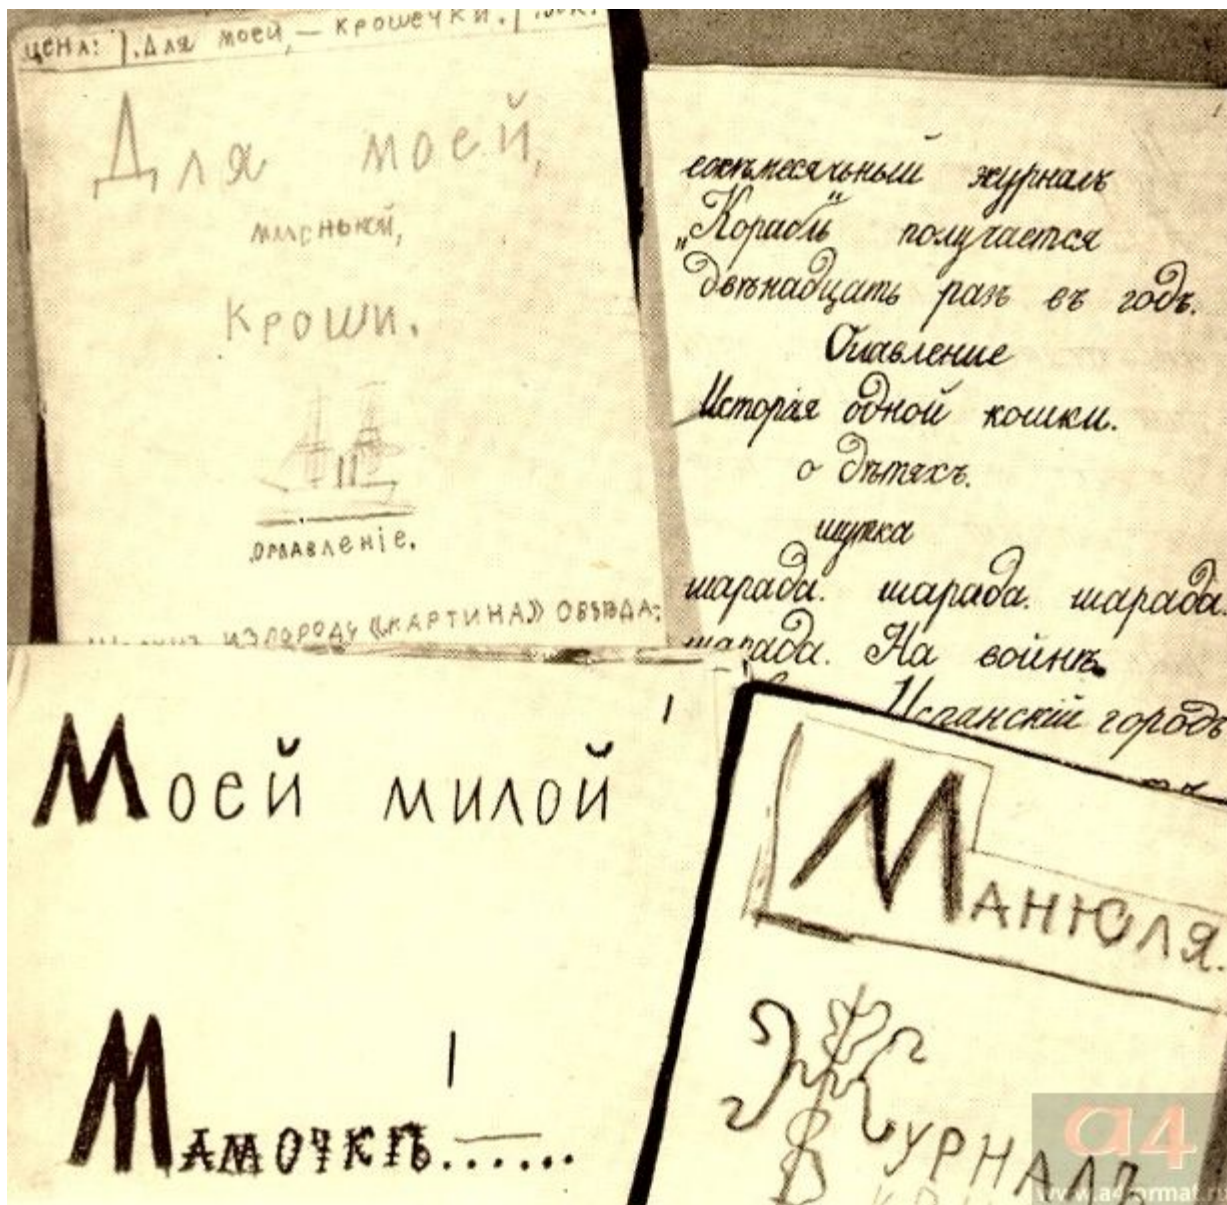 ЦЕНА: 1. Для моей, — крошечки.
Для моей,
маленькой,
Кроши.
оглавленіе.
ИЗЛОРОДУ «КАРТИНА» ОБѢѢДА:
ежѣмесячный журналъ
„Корабль" получается
двѣнадцать разъ въ годъ.
Оглавление
Исторія одной кошки.
о дѣтяхъ.
шутка
шарада. шарада. шарада.
шарада. На войнѣ.
Испанскій городъ
Моей милой
Мамочкѣ......
Манюля.
Журналъ
a4
www.a4format.ru